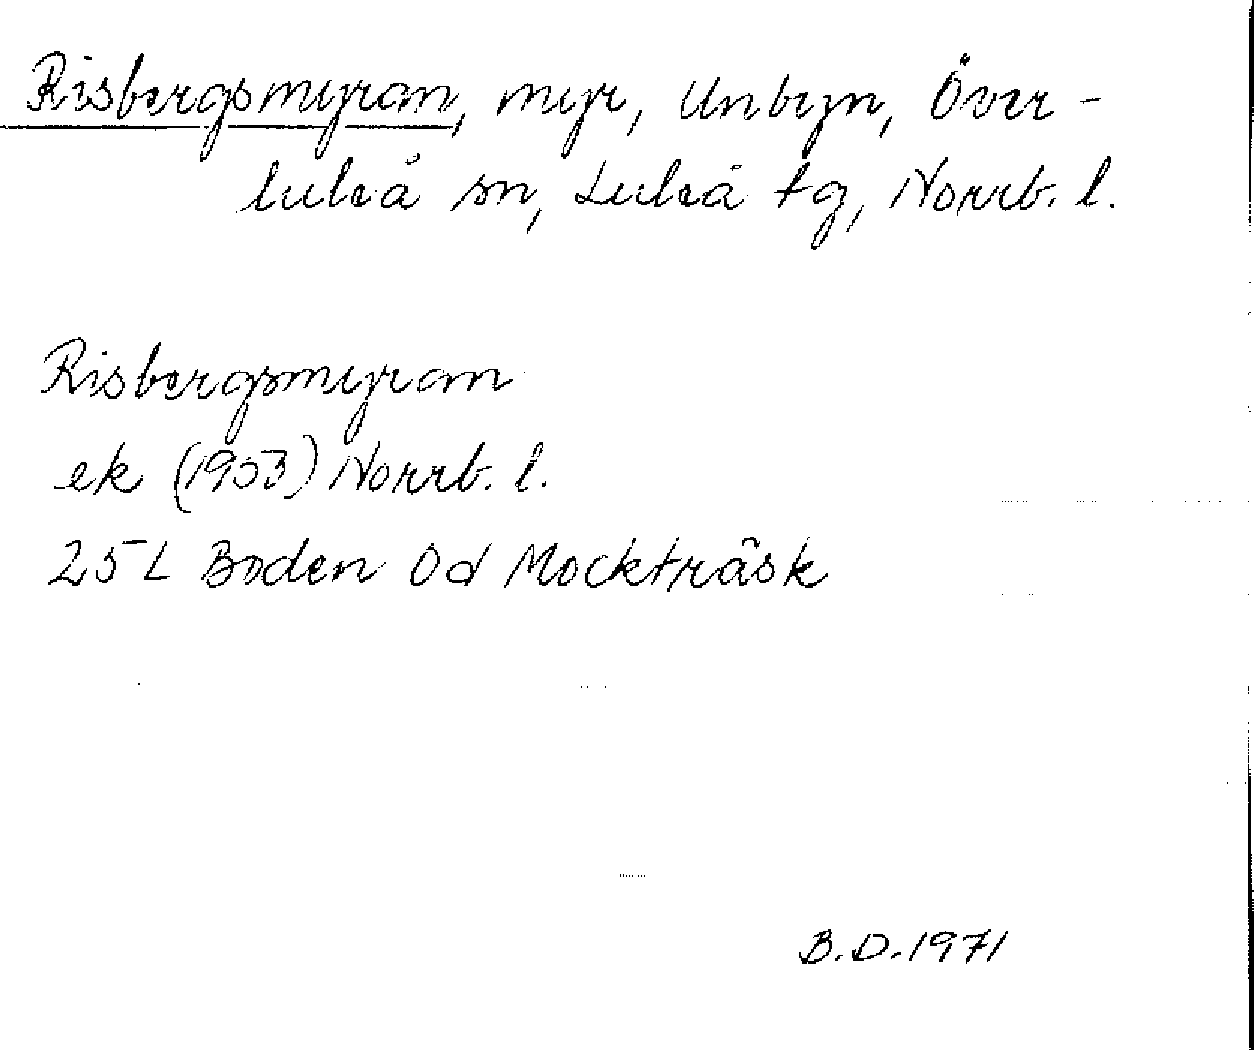 Risbergsmyran, myr, Unbyn, Över-
luleå sn, Luleå tg, Norrb. l.
Risbergsmyran
ek (1953) Norrb. l.
25 L Boden 0d Mockträsk
B.D. 1971